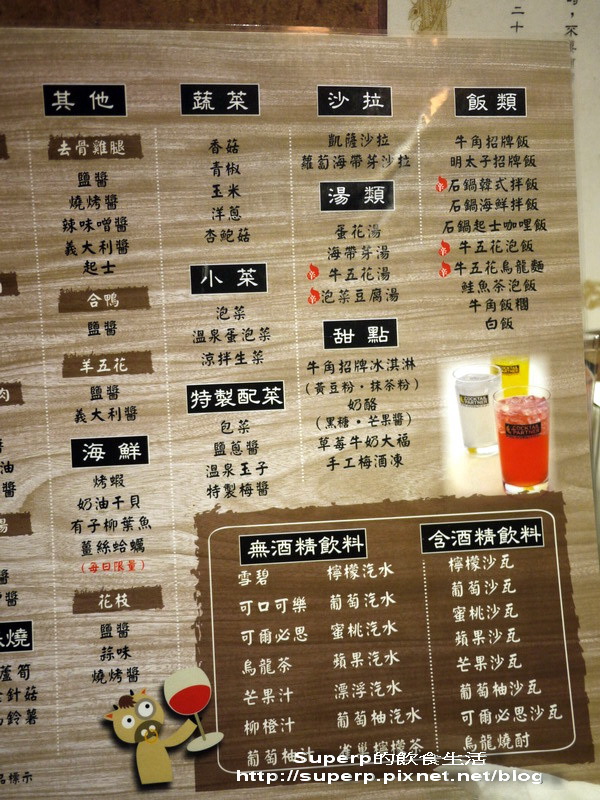 其他
去骨雞腿
鹽醬
燒烤醬
辣味噌醬
義大利醬
起士
合鴨
鹽醬
羊五花
鹽醬
義大利醬
海鮮
烤蝦
奶油干貝
有子柳葉魚
薑絲蛤蠣
(每日限量)
花枝
鹽醬
蒜味
燒烤醬
蔬菜
香菇
青椒
玉米
洋蔥
杏鮑菇
小菜
泡菜
溫泉蛋泡菜
涼拌生菜
特製配菜
包菜
鹽蔥醬
溫泉玉子
特製梅醬
沙拉
凱薩沙拉
蘿蔔海帶芽沙拉
湯類
蛋花湯
海帶芽湯
牛五花湯
泡菜豆腐湯
甜點
牛角招牌冰淇淋
(黃豆粉·抹茶粉)
奶酪
(黑糖·芒果醬)
草莓牛奶大福
手工梅酒凍
飯類
牛角招牌飯
明太子招牌飯
石鍋韓式拌飯
石鍋海鮮拌飯
石鍋起士咖哩飯
牛五花泡飯
牛五花烏龍麵
鮭魚茶泡飯
牛角飯糰
白飯
無酒精飲料
雪碧
可口可樂
可爾必思
烏龍茶
芒果汁
柳橙汁
葡萄柚汁
檸檬汽水
葡萄汽水
蜜桃汽水
蘋果汽水
漂浮汽水
葡萄柚汽水
雀巢檸檬茶
含酒精飲料
檸檬沙瓦
葡萄沙瓦
蜜桃沙瓦
蘋果沙瓦
芒果沙瓦
葡萄柚沙瓦
可爾必思沙瓦
烏龍燒酎
Superp的飲食生活
http://superp.pixnet.net/blog